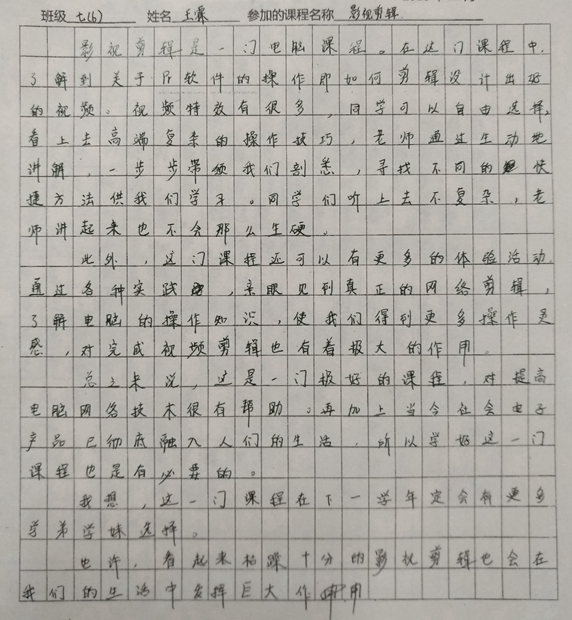 班级 七(6) 姓名 王霖 参加的课程名称 影视剪辑
影视剪辑是一门电脑课程。在这门课程中,
了解到关于Pr软件的操作即如何剪辑设计出好
的视频。视频特效有很多,同学可以自由选择,
看上去高端复杂的操作技巧,老师通过生动地
讲解,一步步带领我们剖悉,寻找不同的快
捷方法供我们学习。同学们听上去不复杂,老
师讲起来也不会那么生硬。
此外,这门课程还可以有更多的体验活动.
通过各种实践,亲眼见到真正的网络剪辑,
了解电脑的操作知识,使我们得到更多操作灵
感,对完成视频剪辑也有着极大的作用。
总之来说,这是一门极好的课程,对提高
电脑网络技术很有帮助。再加上当今社会电子
产品已彻底融入人们的生活,所以学好这一门
课程也是有必要的。
我想,这一门课程在下一学年定会有更多
学弟学妹选择。
也许,看起来枯燥十分的影视剪辑也会在
我们的生活中发挥巨大作用